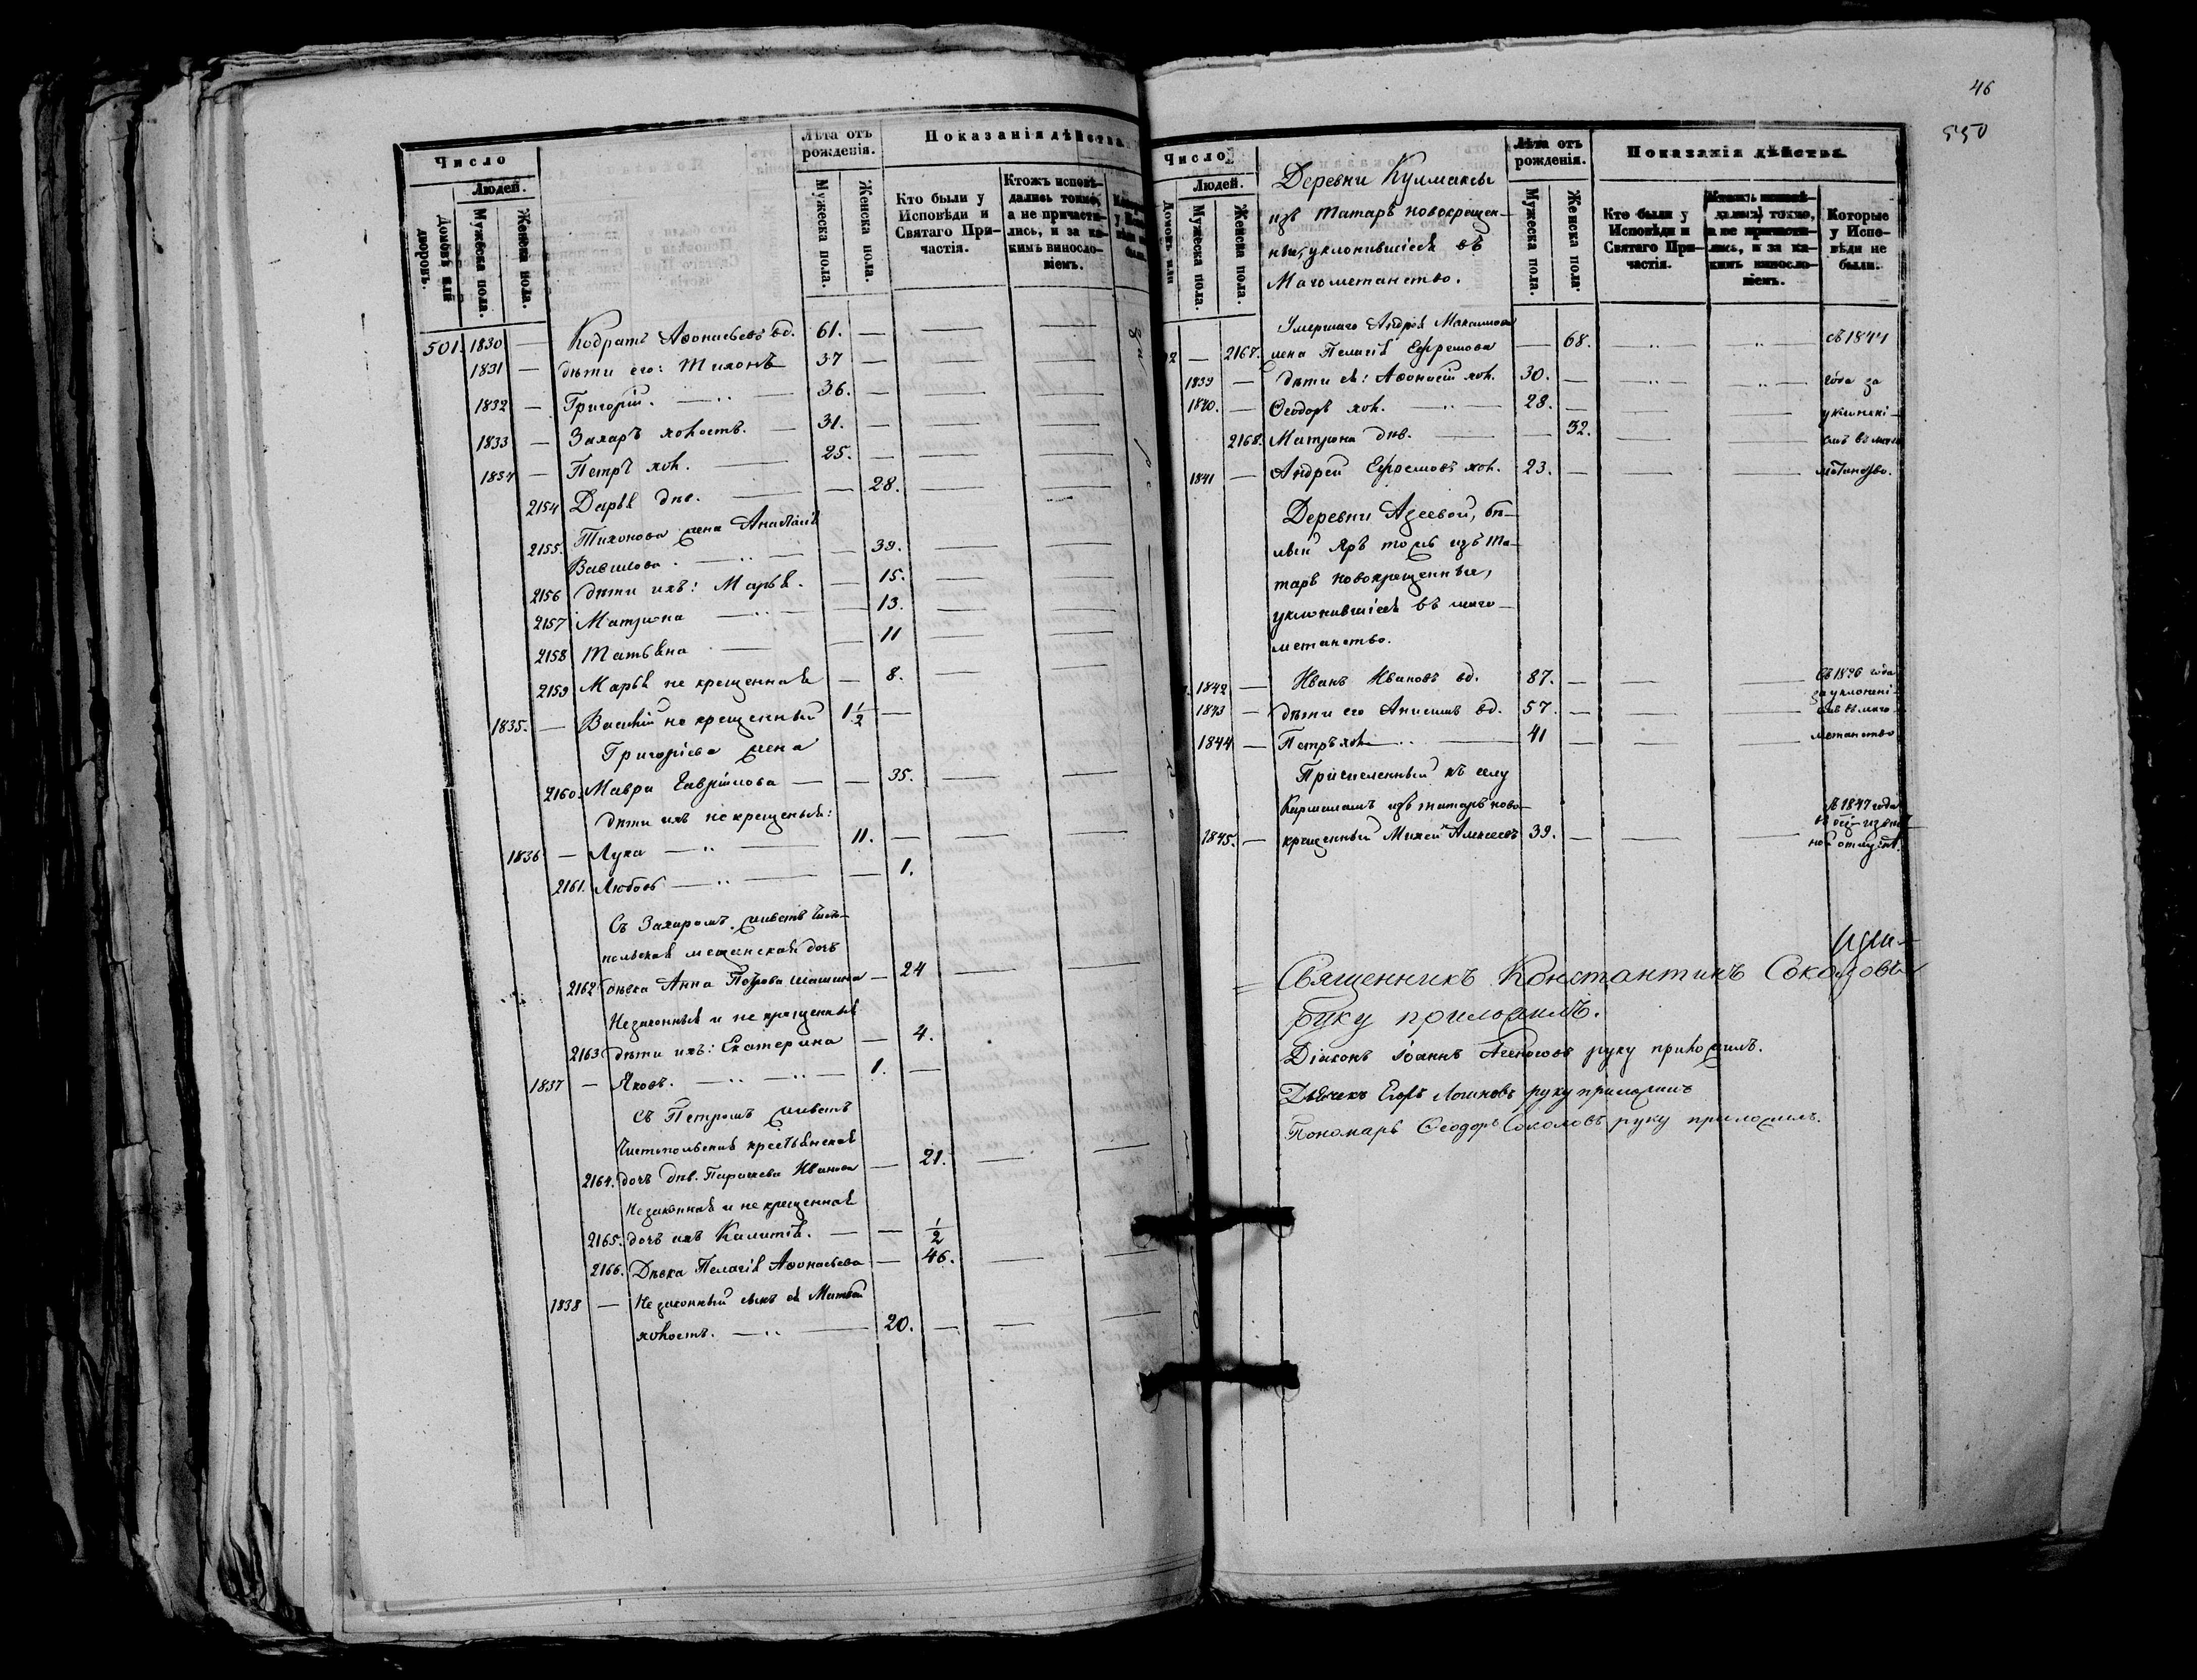 Число
Людей.
Домовъ или дворовъ.
Мужеска пола.
Женска пола.
Лѣта отъ рожденія.
Мужеска пола.
Женска пола.
Показанія дѣйства
Кто были у Исповѣди и Святаго Причастія.
Ктожъ исповѣдались токмо, а не причастились, и за какимъ винословіемъ.
501. 1830 — Кодратъ Аѳонасьевъ вд. 61. —
1831 — дѣти его: Тихонъ 37 —
1832 — Григорій. 36. —
1833 — Захаръ холостъ. 31. —
1834 — Петръ хол. 25. —
2154 Дарья двк. — 28.
Тихонова жена Анастасія
2155. Васильева. — 39.
2156 дѣти ихъ: Марья. — 15.
2157 Матрона — 13.
2158 Татьяна — 11
2159 Марья не крещенная — 8.
1835. — Василій не крещенный 1½ —
Григорьева жена
2160. Мавра Гаврилова — 35.
дѣти ихъ не крещеныя:
1836 — Лука 11. —
2161. Любовь — 1.
Съ Захаромъ живетъ Чисто-
польская мещанская дочь
2162 дѣвка Анна Петрова — 24
Незаконныя и не крещенныя
2163 дѣти ихъ: Екатерина — 4.
1837 — Яковъ. 1. —
Съ Петромъ живетъ
Чистопольская крестьянская
2164. дочь двк. Парасковья Иванова — 21.
Незаконная и не крещенная
2165. дочь ихъ — ½
2166. Дѣвка Пелагія Аѳонасьева — 46.
1838 — Незаконный сынъ ея Матвѣй
холостъ. 20. —
46
550
Число
Людей.
Домовъ или
Мужеска пола.
Женска пола.
Деревни Кулмаксы
изъ Татаръ новокрещен-
ные, уклонившіеся въ
Магометанство.
Лѣта отъ рожденія.
Мужеска пола.
Женска пола.
Показанія дѣйства
Кто были у Исповѣди и Святаго Причастія.
Ктожъ исповѣдались токмо, а не причастились, и за какимъ винословіемъ.
Которые у Исповѣди не были.
Умершаго Андрея Максимова
— 2167. жена Пелагія Ефремова — 68. съ 1844
1839 — дѣти ея: Аѳонасій хол. 30. — года за
1840. — Ѳеодоръ хол. 28. — уклонені-
2168. Матрона двк. — 32. емъ въ маго
1841 — Андрей Ефремовъ хол. 23. — метанство.
Деревни Азеевой, Бѣ-
лый Яръ тожъ изъ Та-
таръ новокрещенные,
уклонившіеся въ маго-
метанство.
1842 — Иванъ Ивановъ вд. 87. — Съ 1826 года
за уклонені-
1843 — дѣти его Анисимъ вд. 57. — емъ въ маго-
1844 — Петръ хол. 41 — метанство
Причисленный къ селу
изъ татаръ ново-
1845. — крещенный Михей Алексеевъ 39. — съ 1847 года
Священникъ Константинъ Соколовъ
руку приложилъ.
Діаконъ Іоаннъ руку приложилъ.
Дьячекъ Егоръ Логиновъ руку приложилъ
Пономарь Ѳеодоръ Соколовъ руку приложилъ.